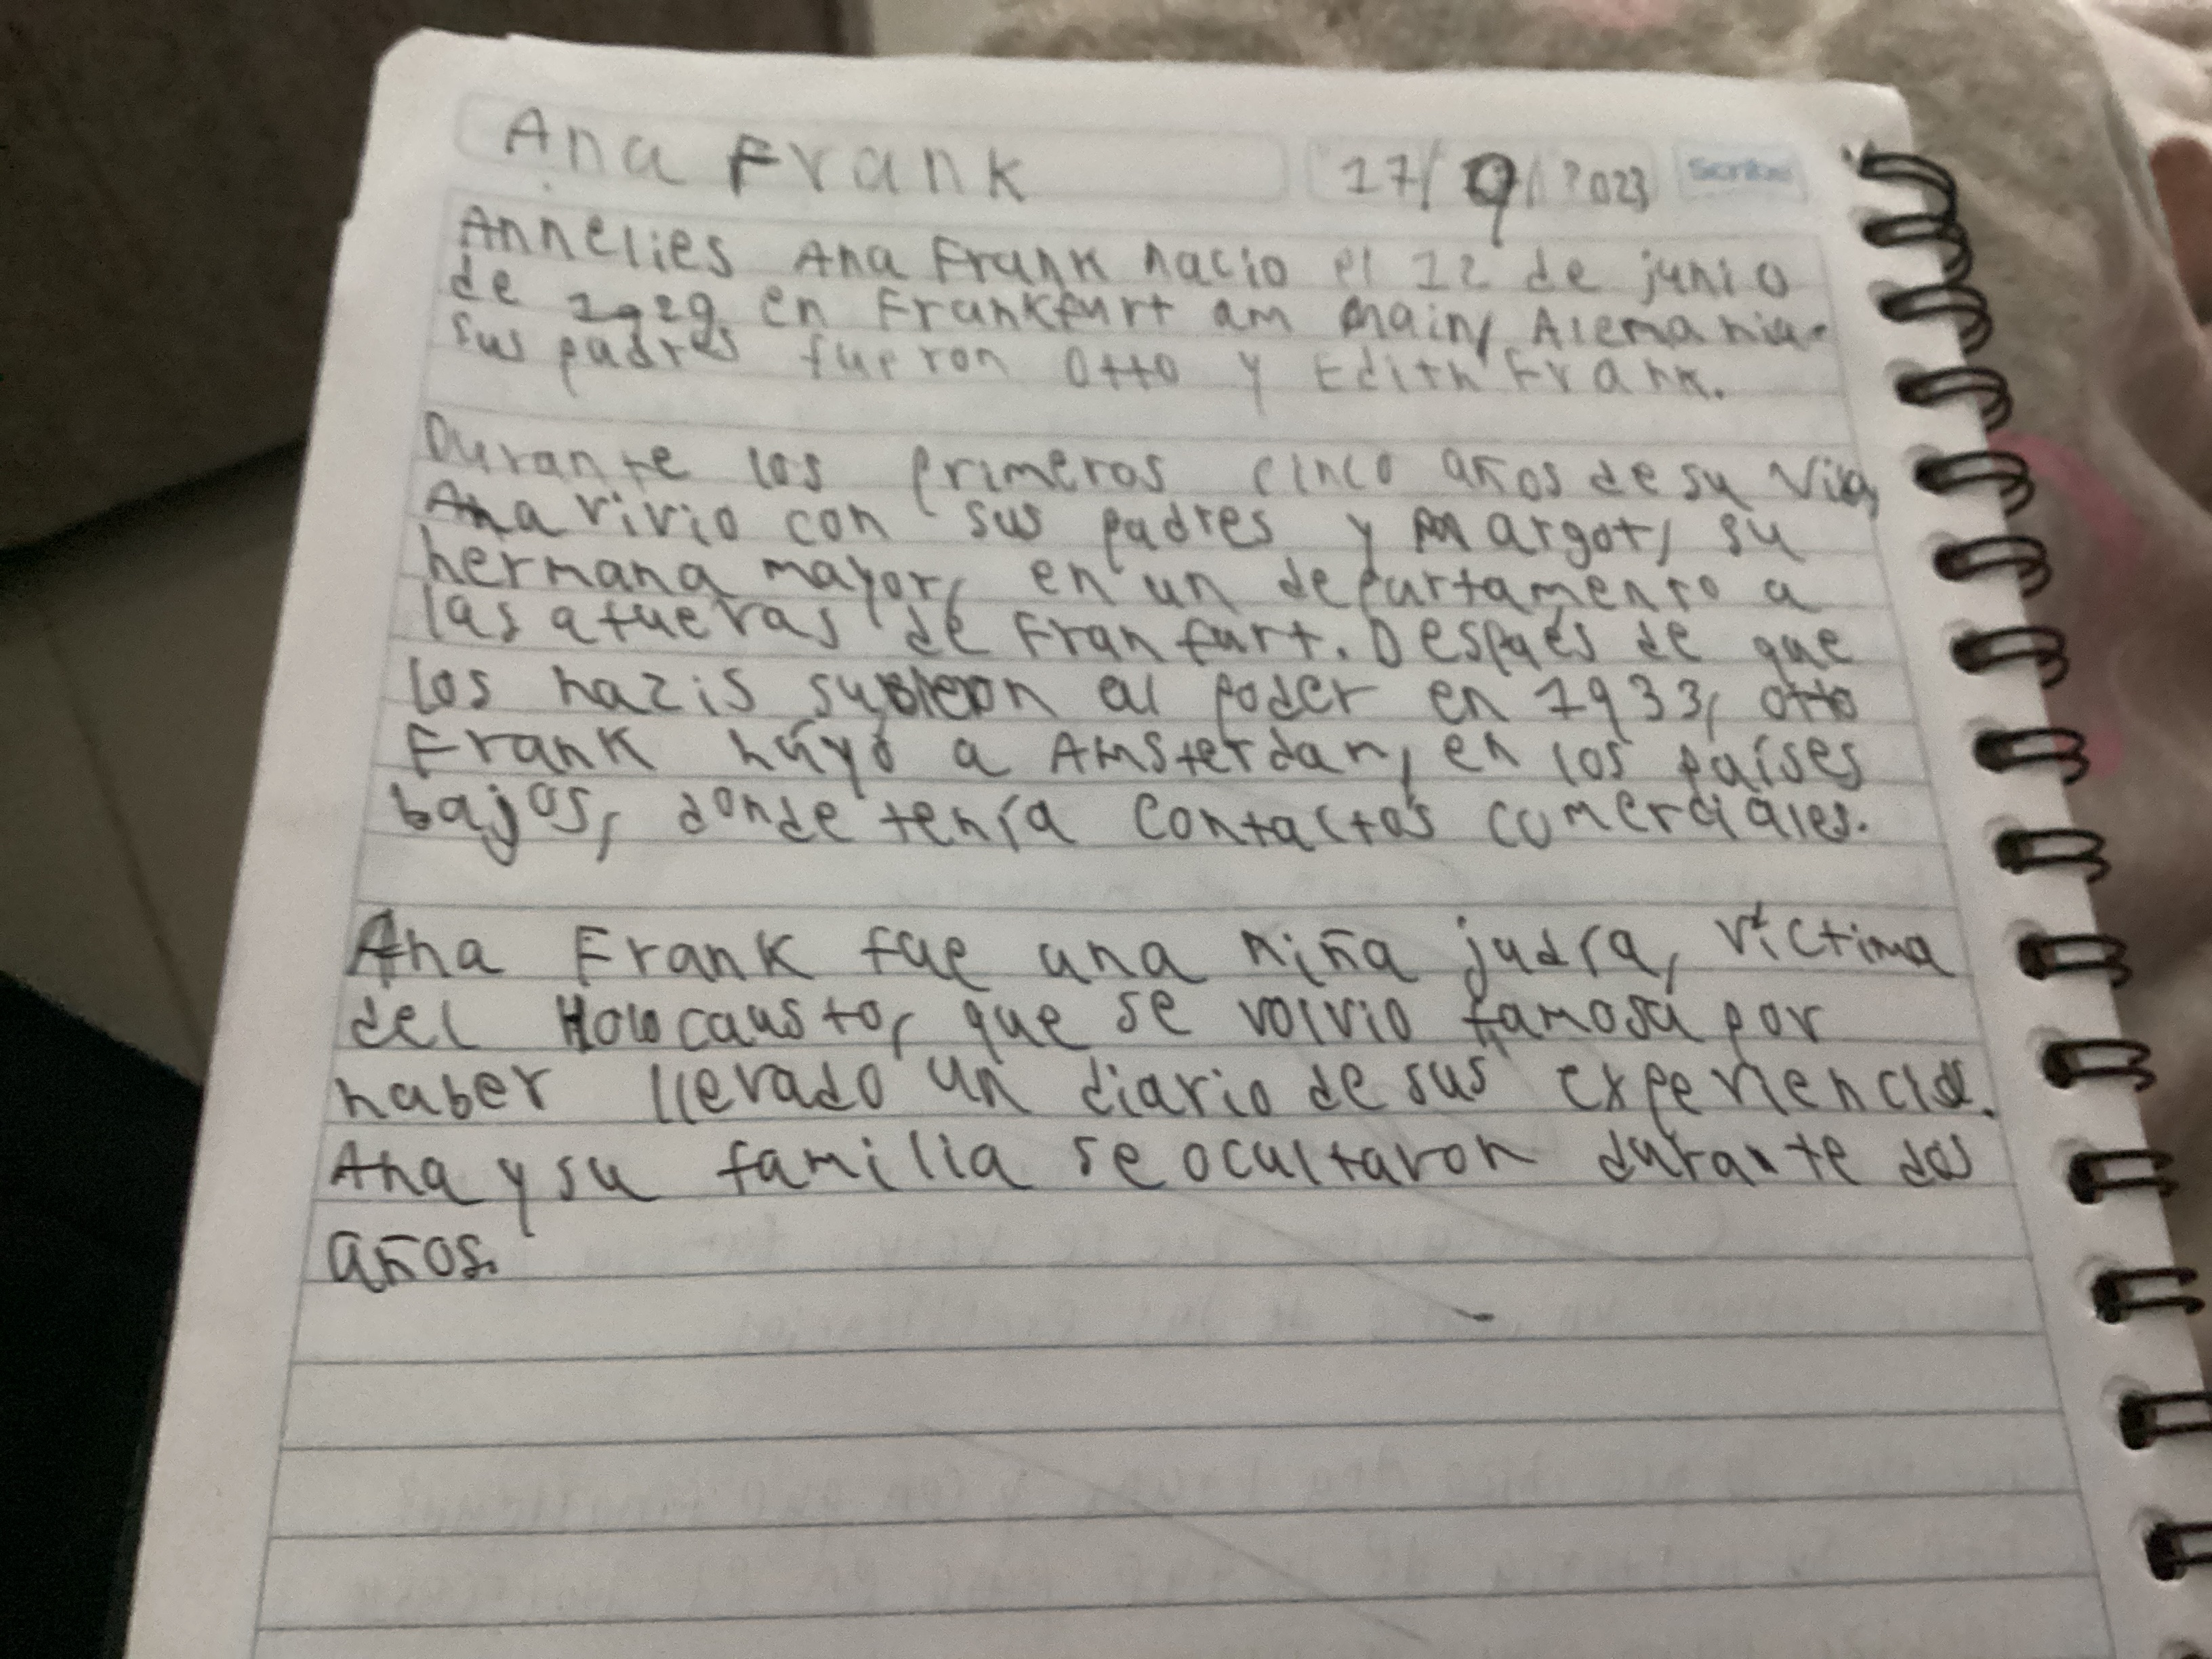 Ana Frank 17/9/2023 Scribe
Annelies Ana Frank nacio el 12 de junio
de 1929 en Frankfurt am Main, Alemania.
Sus padres fueron Otto y Edith Frank.
Durante los primeros cinco años de su Vida,
Ana vivio con sus padres y Margot, su
hermana mayor, en un departamento a
las afueras de Franfurt. Después de que
los nazis subieron al poder en 1933, Otto
Frank húyó a Amsterdan, en los países
bajos, donde tenía contactos comerciales.
Ana Frank fue una niña judía, víctima
del Holocausto, que se volvio famosa por
haber llevado un diario de sus experiencias.
Ana y su familia se ocultaron durante dos
años.